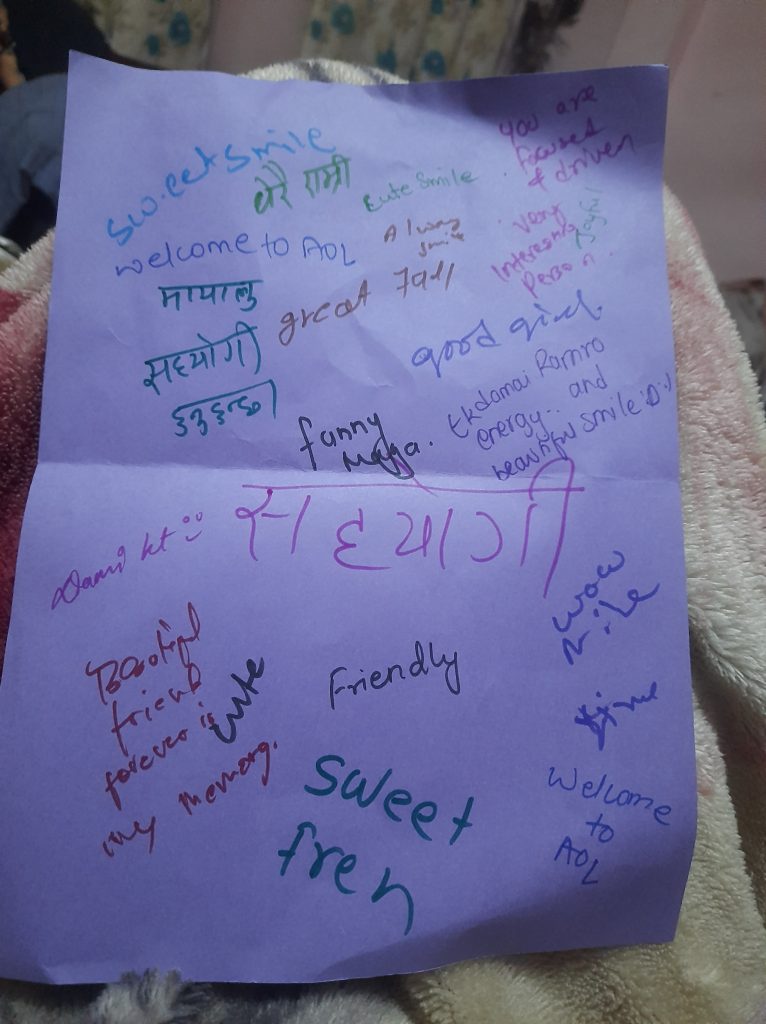 sweet smile
धेरै राम्री
cute smile
you are
focused
& driven
welcome to AOL
Always
smile
very
Interesting
person.
Joyful
मायालु
great
सहयोगी
हुनुहुन्छ।
good girl
Ekdamai Ramro
energy.. and
beautiful smile :D :)
funny
सहयोगी
Beautiful
friend
forever is
my memory.
cute
friendly
wow
smile
time
sweet
fren
Welcome
to
AOL